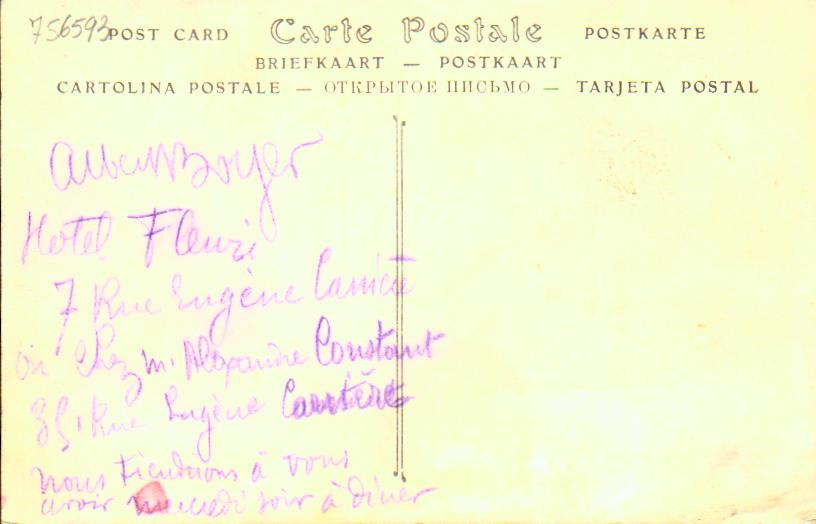 756593 POST CARD Carte Postale POSTKARTE
BRIEFKAART — POSTKAART
CARTOLINA POSTALE — ОТКРЫТОЕ ПИСЬМО — TARJETA POSTAL
Albert Boyer
Hotel Fleuri
7 Rue Eugène Carrière
ou chez M. Alexandre Constant
35, Rue Eugène Carrière
nous tiendrions à vous
avoir mercredi soir à diner